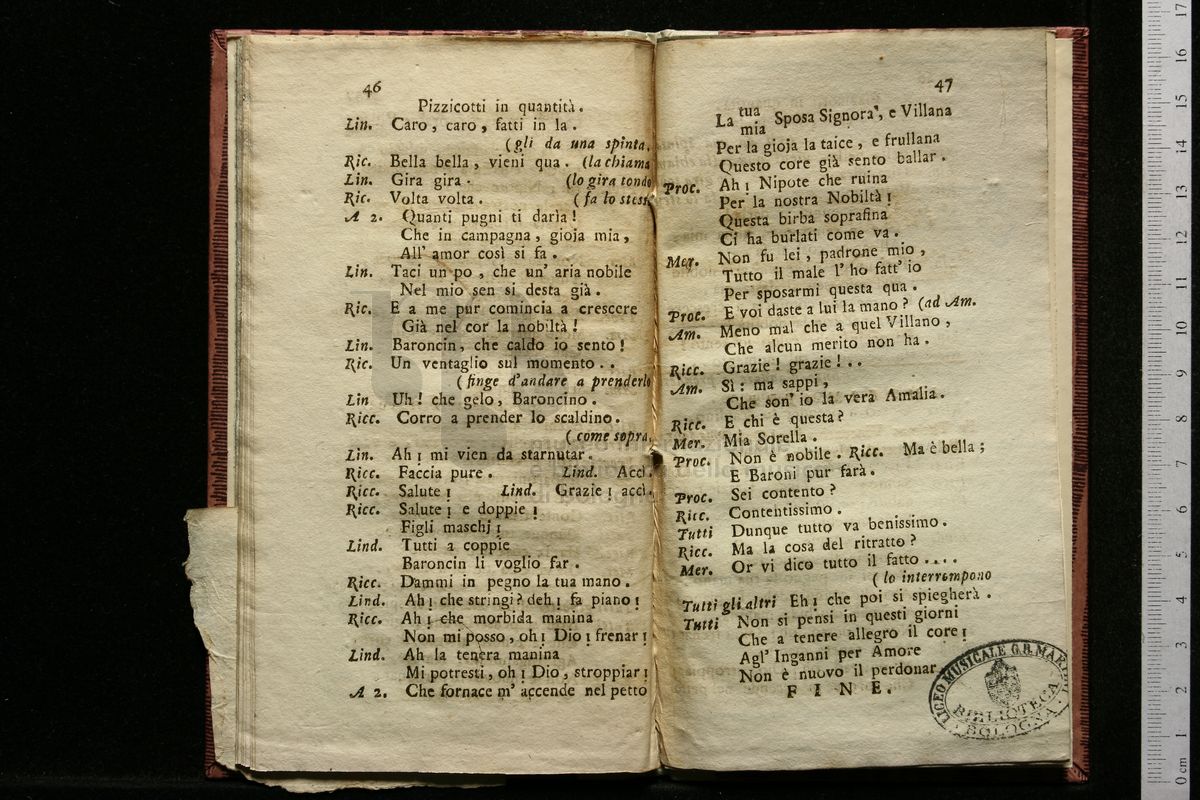 46
Pizzicotti in quantità.
Lin. Caro, caro, fatti in la.
(gli da una spinta.
Ric. Bella bella, vieni qua. (la chiama
Lin. Gira gira. (lo gira tondo
Ric. Volta volta. (fa lo stess
A 2. Quanti pugni ti darìa!
Che in campagna, gioja mia,
All' amor così si fa.
Lin. Taci un po, che un' aria nobile
Nel mio sen si desta già.
Ric. E a me pur comincia a crescere
Già nel cor la nobiltà!
Lin. Baroncin, che caldo io sento!
Ric. Un ventaglio sul momento..
(finge d'andare a prenderlo
Lin Uh! che gelo, Baroncino.
Ricc. Corro a prender lo scaldino.
(come sopra.
Lin. Ah¡ mi vien da starnutar.
Ricc. Faccia pure. Lind. Accì.
Ricc. Salute¡ Lind. Grazie¡ accì.
Ricc. Salute¡ e doppie¡
Figli maschj¡
Lind. Tutti a coppie
Baroncin li voglio far.
Ricc. Dammi in pegno la tua mano.
Lind. Ah¡ che stringi? deh¡ fa piano¡
Ricc. Ah¡ che morbida manina
Non mi posso, oh¡ Dio¡ frenar¡
Lind. Ah la tenera manina
Mi potresti, oh¡ Dio, stroppiar¡
A 2. Che fornace m' accende nel petto
47
La tua
mia Sposa Signora', e Villana
Per la gioja la taice, e frullana
Questo core già sento ballar.
Proc. Ah¡ Nipote che ruina
Per la nostra Nobiltà¡
Questa birba soprafina
Ci ha burlati come va.
Mer. Non fu lei, padrone mio,
Tutto il male l' ho fatt' io
Per sposarmi questa qua.
Proc. E voi daste a lui la mano? (ad Am.
Am. Meno mal che a quel Villano,
Che alcun merito non ha.
Ricc. Grazie! grazie!...
Am. Sì: ma sappi,
Che son' io la vera Amalia.
Ricc. E chi è questa?
Mer. Mia Sorella.
Proc. Non è nobile. Ricc. Ma è bella;
E Baroni pur farà.
Proc. Sei contento?
Ricc. Contentissimo.
Tutti Dunque tutto va benissimo.
Ricc. Ma la cosa del ritratto?
Mer. Or vi dico tutto il fatto....
(lo interrompono
Tutti gli altri Eh¡ che poi si spiegherà.
Tutti Non si pensi in questi giorni
Che a tenere allegro il core¡
Agl' Inganni per Amore
Non è nuovo il perdonar.
FINE.
LICEO MUSICALE G.B. MARTI
BIBLIOTECA
BOLOGNA
17
16
15
14
13
12
11
10
9
8
7
6
5
4
3
2
1
0 cm